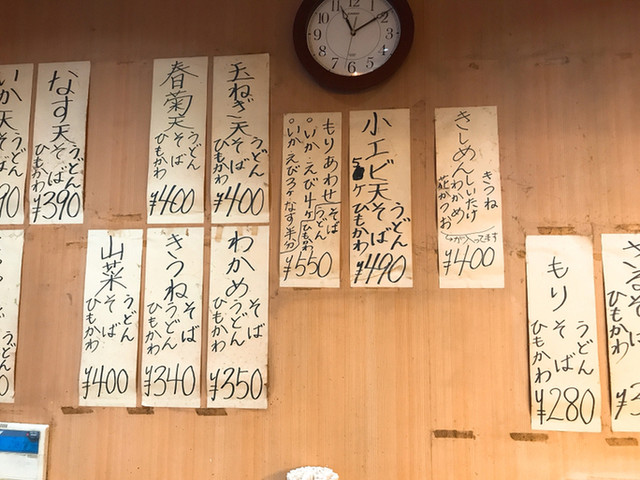 いか天
そば
90
なす天
うどん
そば
ひもかわ
¥390
春菊天
うどん
そば
ひもかわ
¥400
玉ねぎ天
うどん
そば
ひもかわ
¥400
もりあわせ
そば
うどん
ひもかわ
○いか・えび4ヶ
○いかえび3ヶなす半分
¥550
小エビ天
5ヶ
うどん
そば
ひもかわ
¥490
きしめん
きうね
しいたけ
わかめ
花かつお
が入ってます
¥400
山菜
うどん
そば
ひもかわ
¥400
きうね
そば
うどん
ひもかわ
¥340
わかめ
そば
うどん
ひもかわ
¥350
もり
うどん
そば
ひもかわ
¥280
そば
ひもかわ
うどん
0
12
1
2
3
4
5
6
7
8
9
10
11